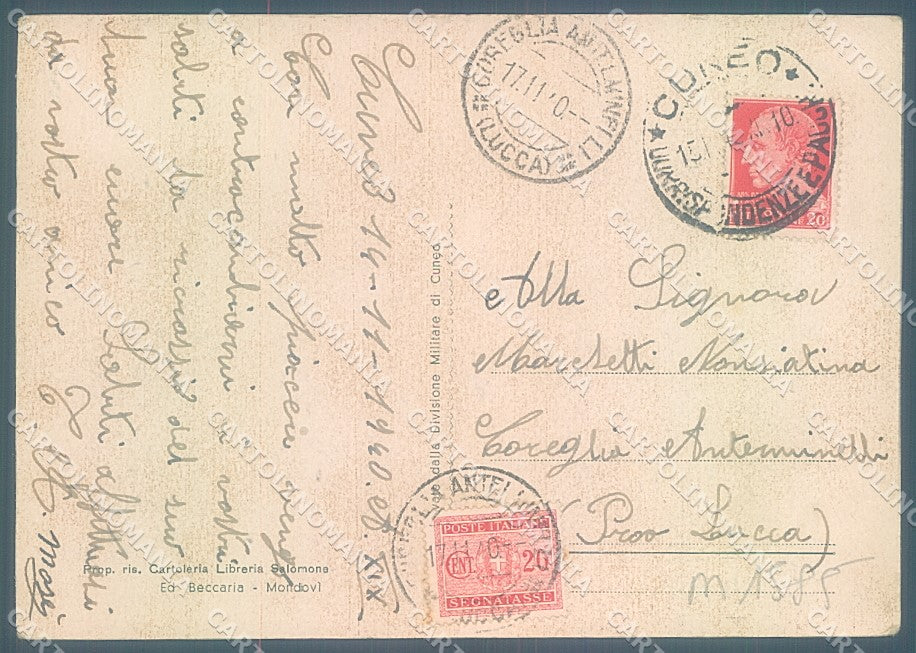 Cuneo 14-11-1940.
XIX
Con molto piacere vengo
a contracambiarvi i vostri
saluti
del suo
buon cuore Saluti affettuosi
da vostro amico
Prop. ris. Cartoleria Libreria Salomone
Ed Beccaria - Mondovì
dalla Divisione Militare di Cuneo
COREGLIA ANTELMINELLI
17.11.40.-
(LUCCA)
CUNEO
CORRISPONDENZE E PACCHI
20
Alla Signora
Marchetti Nunziatina
Coreglia Anterminelli
(Prov Lucca)
POSTE ITALIANE
CENT. 20
SEGNATASSE
COREGLIA ANTELMINELLI
17.11.40.-
CARTOLINOMANIA